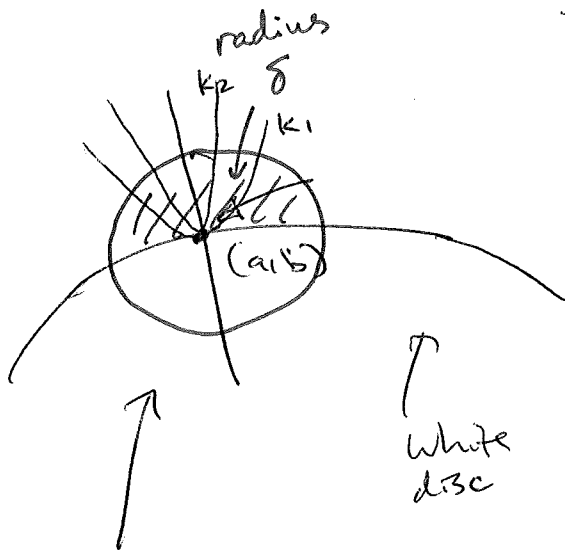 radius
δ
K2
K1
(a,b)
white
disc